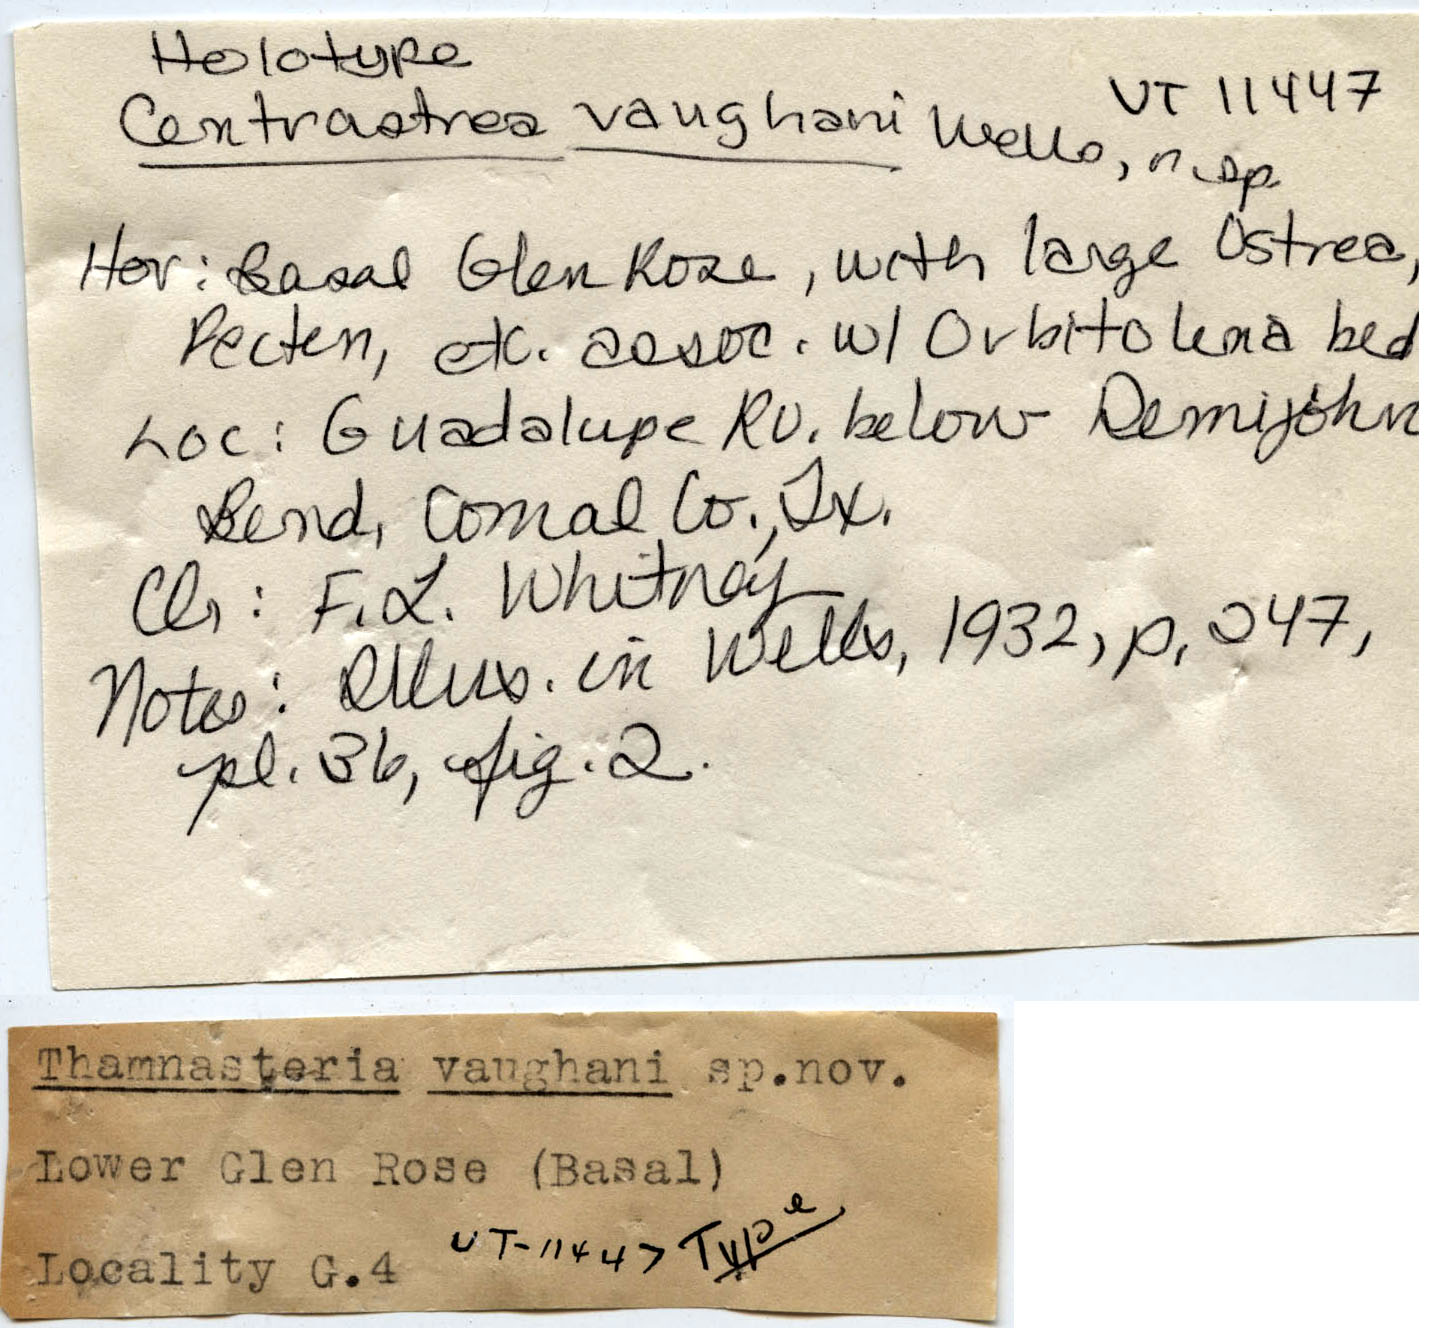 Holotype
UT 11447
Centrastrea vaughani Wells, n. sp.
Hor: Basal Glen Rose, with large Ostrea,
Pecten, etc. assoc. w/ Orbitolina bed
Loc: Guadalupe Rv. below Demijohn
Bend, Comal Co., Tx.
Clr: F.L. Whitney
Notes: Illus. in Wells, 1932, p. 247,
pl. 36, fig. 2.
Thamnasteria vaughani sp.nov.
Lower Glen Rose (Basal)
Locality G.4 UT-11447 Type